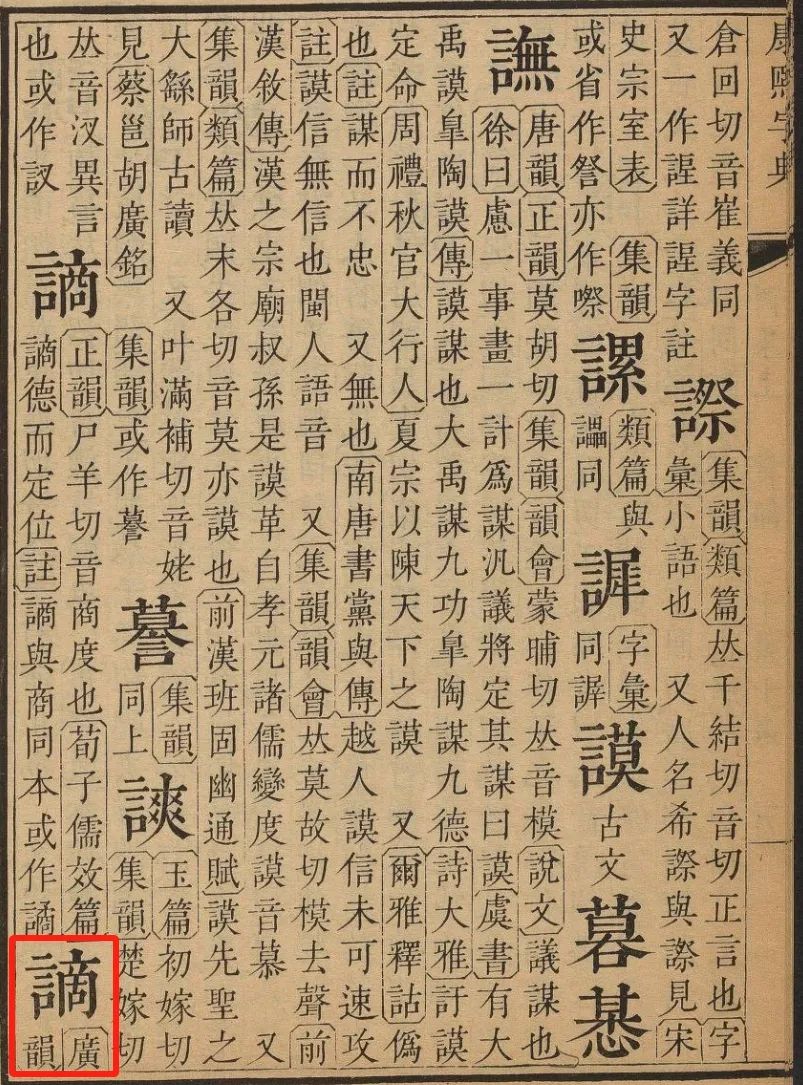 康熙字典
倉回切音崔義同
又一作諻詳諻字註
䜁
集韻類篇𠀤千結切音切正言也字
彙小語也 又人名希䜁與䜁見宋
史宗室表 集韻
或省作詧亦作嚓
類篇與
讄同
字彙
同
謨
古文
譕
唐韻正韻莫胡切集韻韻會蒙晡切𠀤音模說文議謀也
徐曰慮一事畫一計爲謀汎議將定其謀曰謨虞書有大
禹謨皐陶謨傳謨謀也大禹謀九功皐陶謀九德詩大雅訏謨
定命周禮秋官大行人夏宗以陳天下之謨 又爾雅釋詁僞
也註謀而不忠 又無也南唐書黨與傳越人謨信未可速攻
註謨信無信也閩人語音 又集韻韻會𠀤莫故切模去聲前
漢敘傳漢之宗廟叔孫是謨革自孝元諸儒變度謨音慕 又
集韻類篇𠀤末各切音莫亦謨也前漢班固幽通賦謨先聖之
大繇師古讀 又叶滿補切音姥
見蔡邕胡廣銘 集韻或作謩
謩
集韻
同上
玉篇初嫁切
集韻楚嫁切
𠀤音汊異言
也或作訍
謪
正韻尸羊切音商度也荀子儒效篇
謪德而定位註謪與商同本或作譎
謫
廣
韻